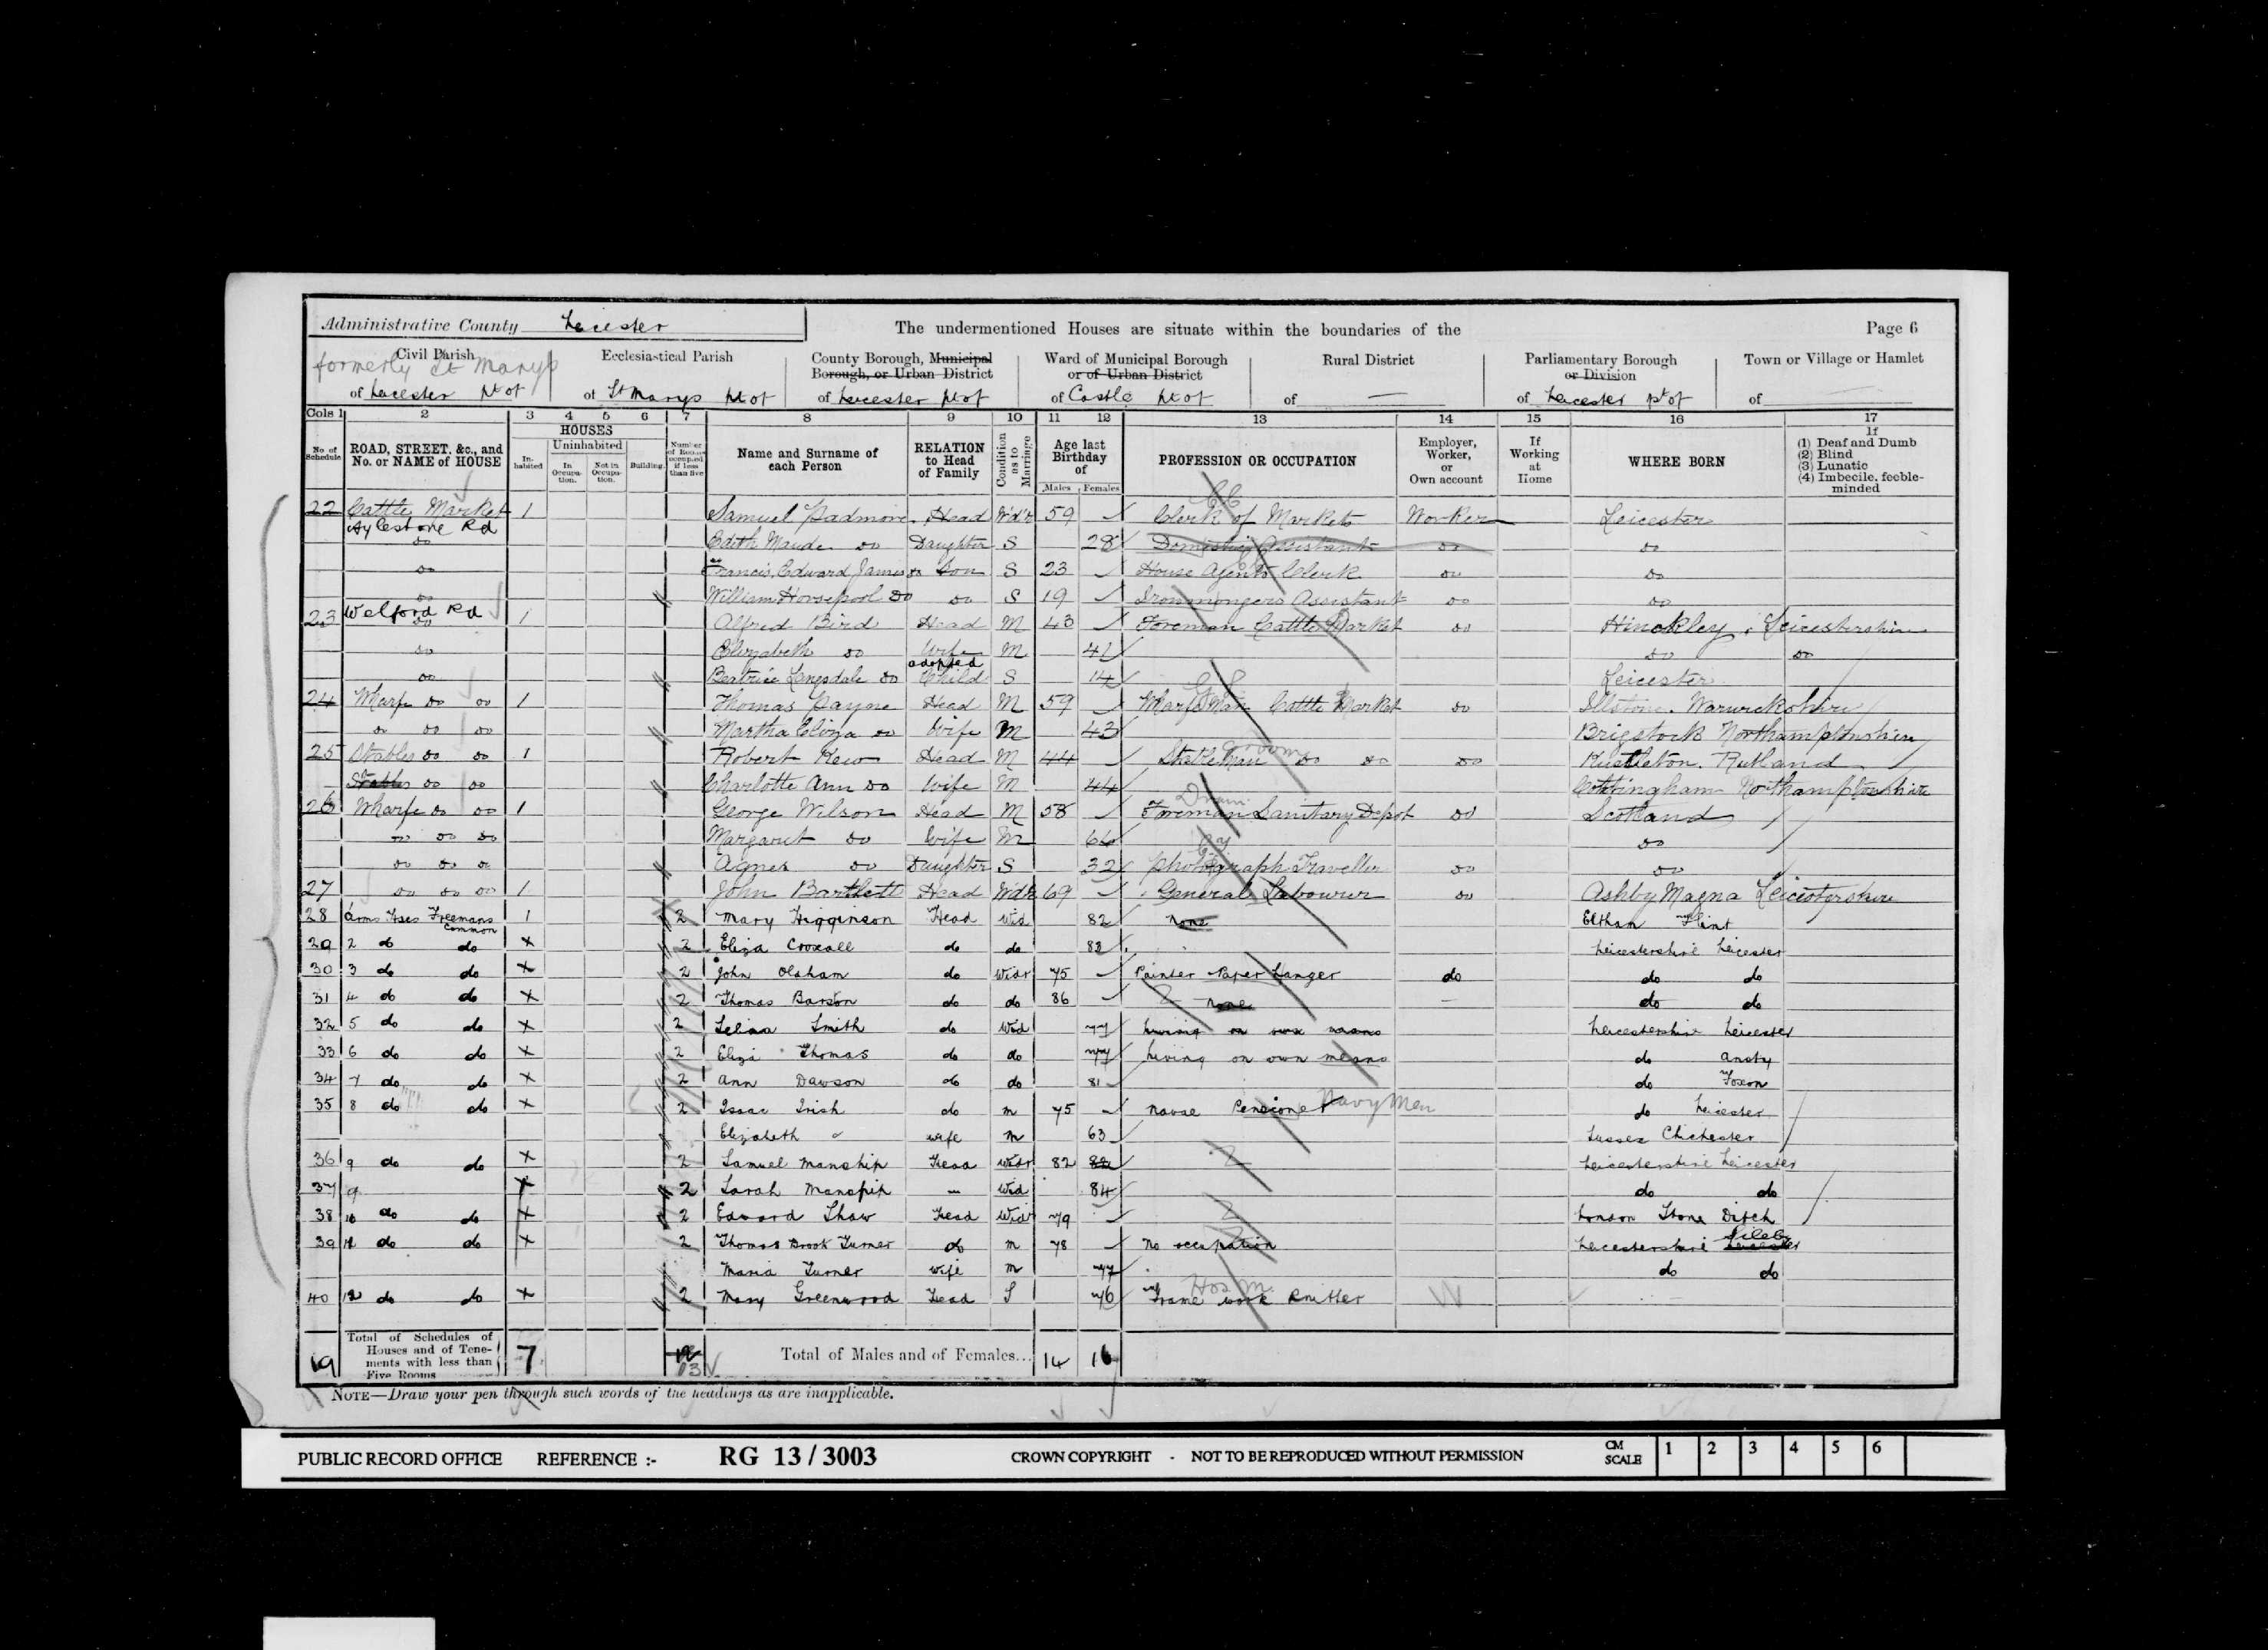 Administrative County Leicester
The undermentioned Houses are situate within the boundaries of the
Page 6
Civil Parish
formerly St Marys
of Leicester pt of
Ecclesiastical Parish
of St Marys pt of
County Borough, Municipal
Borough, or Urban District
of Leicester pt of
Ward of Municipal Borough
or of Urban District
of Castle pt of
Rural District
of —
Parliamentary Borough
or Division
of Leicester pt of
Town or Village or Hamlet
of
Cols 1 2 3 4 5 6 7 8 9 10 11 12 13 14 15 16 17
No of Schedule
ROAD, STREET, &c., and No. or NAME of HOUSE
HOUSES
Inhabited
Uninhabited
In Occupation.
Not in Occupation.
Building
Number of Rooms occupied if less than five
Name and Surname of each Person
RELATION to Head of Family
Condition as to Marriage
Age last Birthday of
Males Females
PROFESSION OR OCCUPATION
Employer, Worker, or Own account
If Working at Home
WHERE BORN
If
(1) Deaf and Dumb
(2) Blind
(3) Lunatic
(4) Imbecile, feeble-minded
22 Cattle Market 1 Samuel Padmore Head Wdr 59 Clerk of Markets Worker Leicester
Aylestone Rd
do Edith Maude do Daughter S 28 Domestic Assistant do do
do Francis Edward James do Son S 23 House Agents Clerk do do
do William Horsepool do do S 19 Ironmongers Assistant do do
23 Welford Rd 1 Alfred Bird Head M 43 Foreman Cattle Market do Hinckley, Leicestershire
do Elizabeth do Wife M 41 do do
do Beatrice do adopted Child S 14 Leicester
24 Wharfe do do 1 Thomas Payne Head M 59 Wharfe Man Cattle Market do Warwickshire
do do do Martha Eliza do Wife M 43 Brigstock Northamptonshire
25 Stables do do 1 Robert Kew Head M 44 do do do Rutland
Stables do do Charlotte Ann do Wife M 44 Cottingham Northamptonshire
26 Wharfe do do 1 George Wilson Head M 58 Foreman Sanitary Depot do Scotland
do do do Margaret do Wife M 64 do
do do do Agnes do Daughter S 32 Photograph Traveller do do
27 do do do 1 John Bartlett Head Wdr 69 General Labourer do Ashby Magna Leicestershire
28 Arms Hses Freemans Common 1 2 Mary Higginson Head Wid 82 None Flint
29 2 do do x 2 Eliza Croxall do do 82 Leicestershire Leicester
30 3 do do x 2 John Oldham do Widr 75 Painter Paper Hanger do do do
31 4 do do x 2 Thomas Barson do do 86 None — do do
32 5 do do x 2 Selina Smith do Wid 77 Living on own means Leicestershire Leicester
33 6 do do x 2 Eliza Thomas do do 77 Living on own means do Ansty
34 7 do do x 2 Ann Dawson do do 81 do Foxon
35 8 do do x 2 Isaac Irish do m 75 Naval Pensioner Navy Men do Leicester
Elizabeth do wife m 63 Sussex Chichester
36 9 do do x 2 Samuel Manship Head Widr 82 82 Leicestershire Leicester
37 9 x 2 Sarah Manship — Wid 84 do do
38 10 do do x 2 Edward Shaw Head Widr 79 London Ditch
39 11 do do x 2 Thomas Brook Turner do m 78 No occupation Leicestershire Leicester Sileby
Maria Turner wife m 77 do do
40 12 do do x 2 Mary Greenwood Head S 76 Frame work Knitter
19 Total of Schedules of Houses and of Tenements with less than Five Rooms 7 12 13 Total of Males and of Females... 14 16
NOTE—Draw your pen through such words of the headings as are inapplicable.
PUBLIC RECORD OFFICE REFERENCE :- RG 13 / 3003 CROWN COPYRIGHT - NOT TO BE REPRODUCED WITHOUT PERMISSION CM SCALE 1 2 3 4 5 6